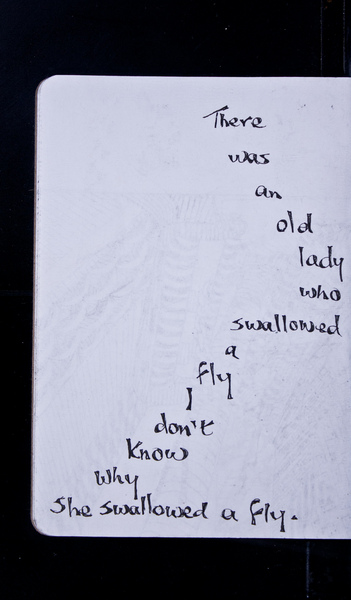 There
was
an
old
lady
who
swallowed
a
fly
I
don't
know
why
She swallowed a fly.